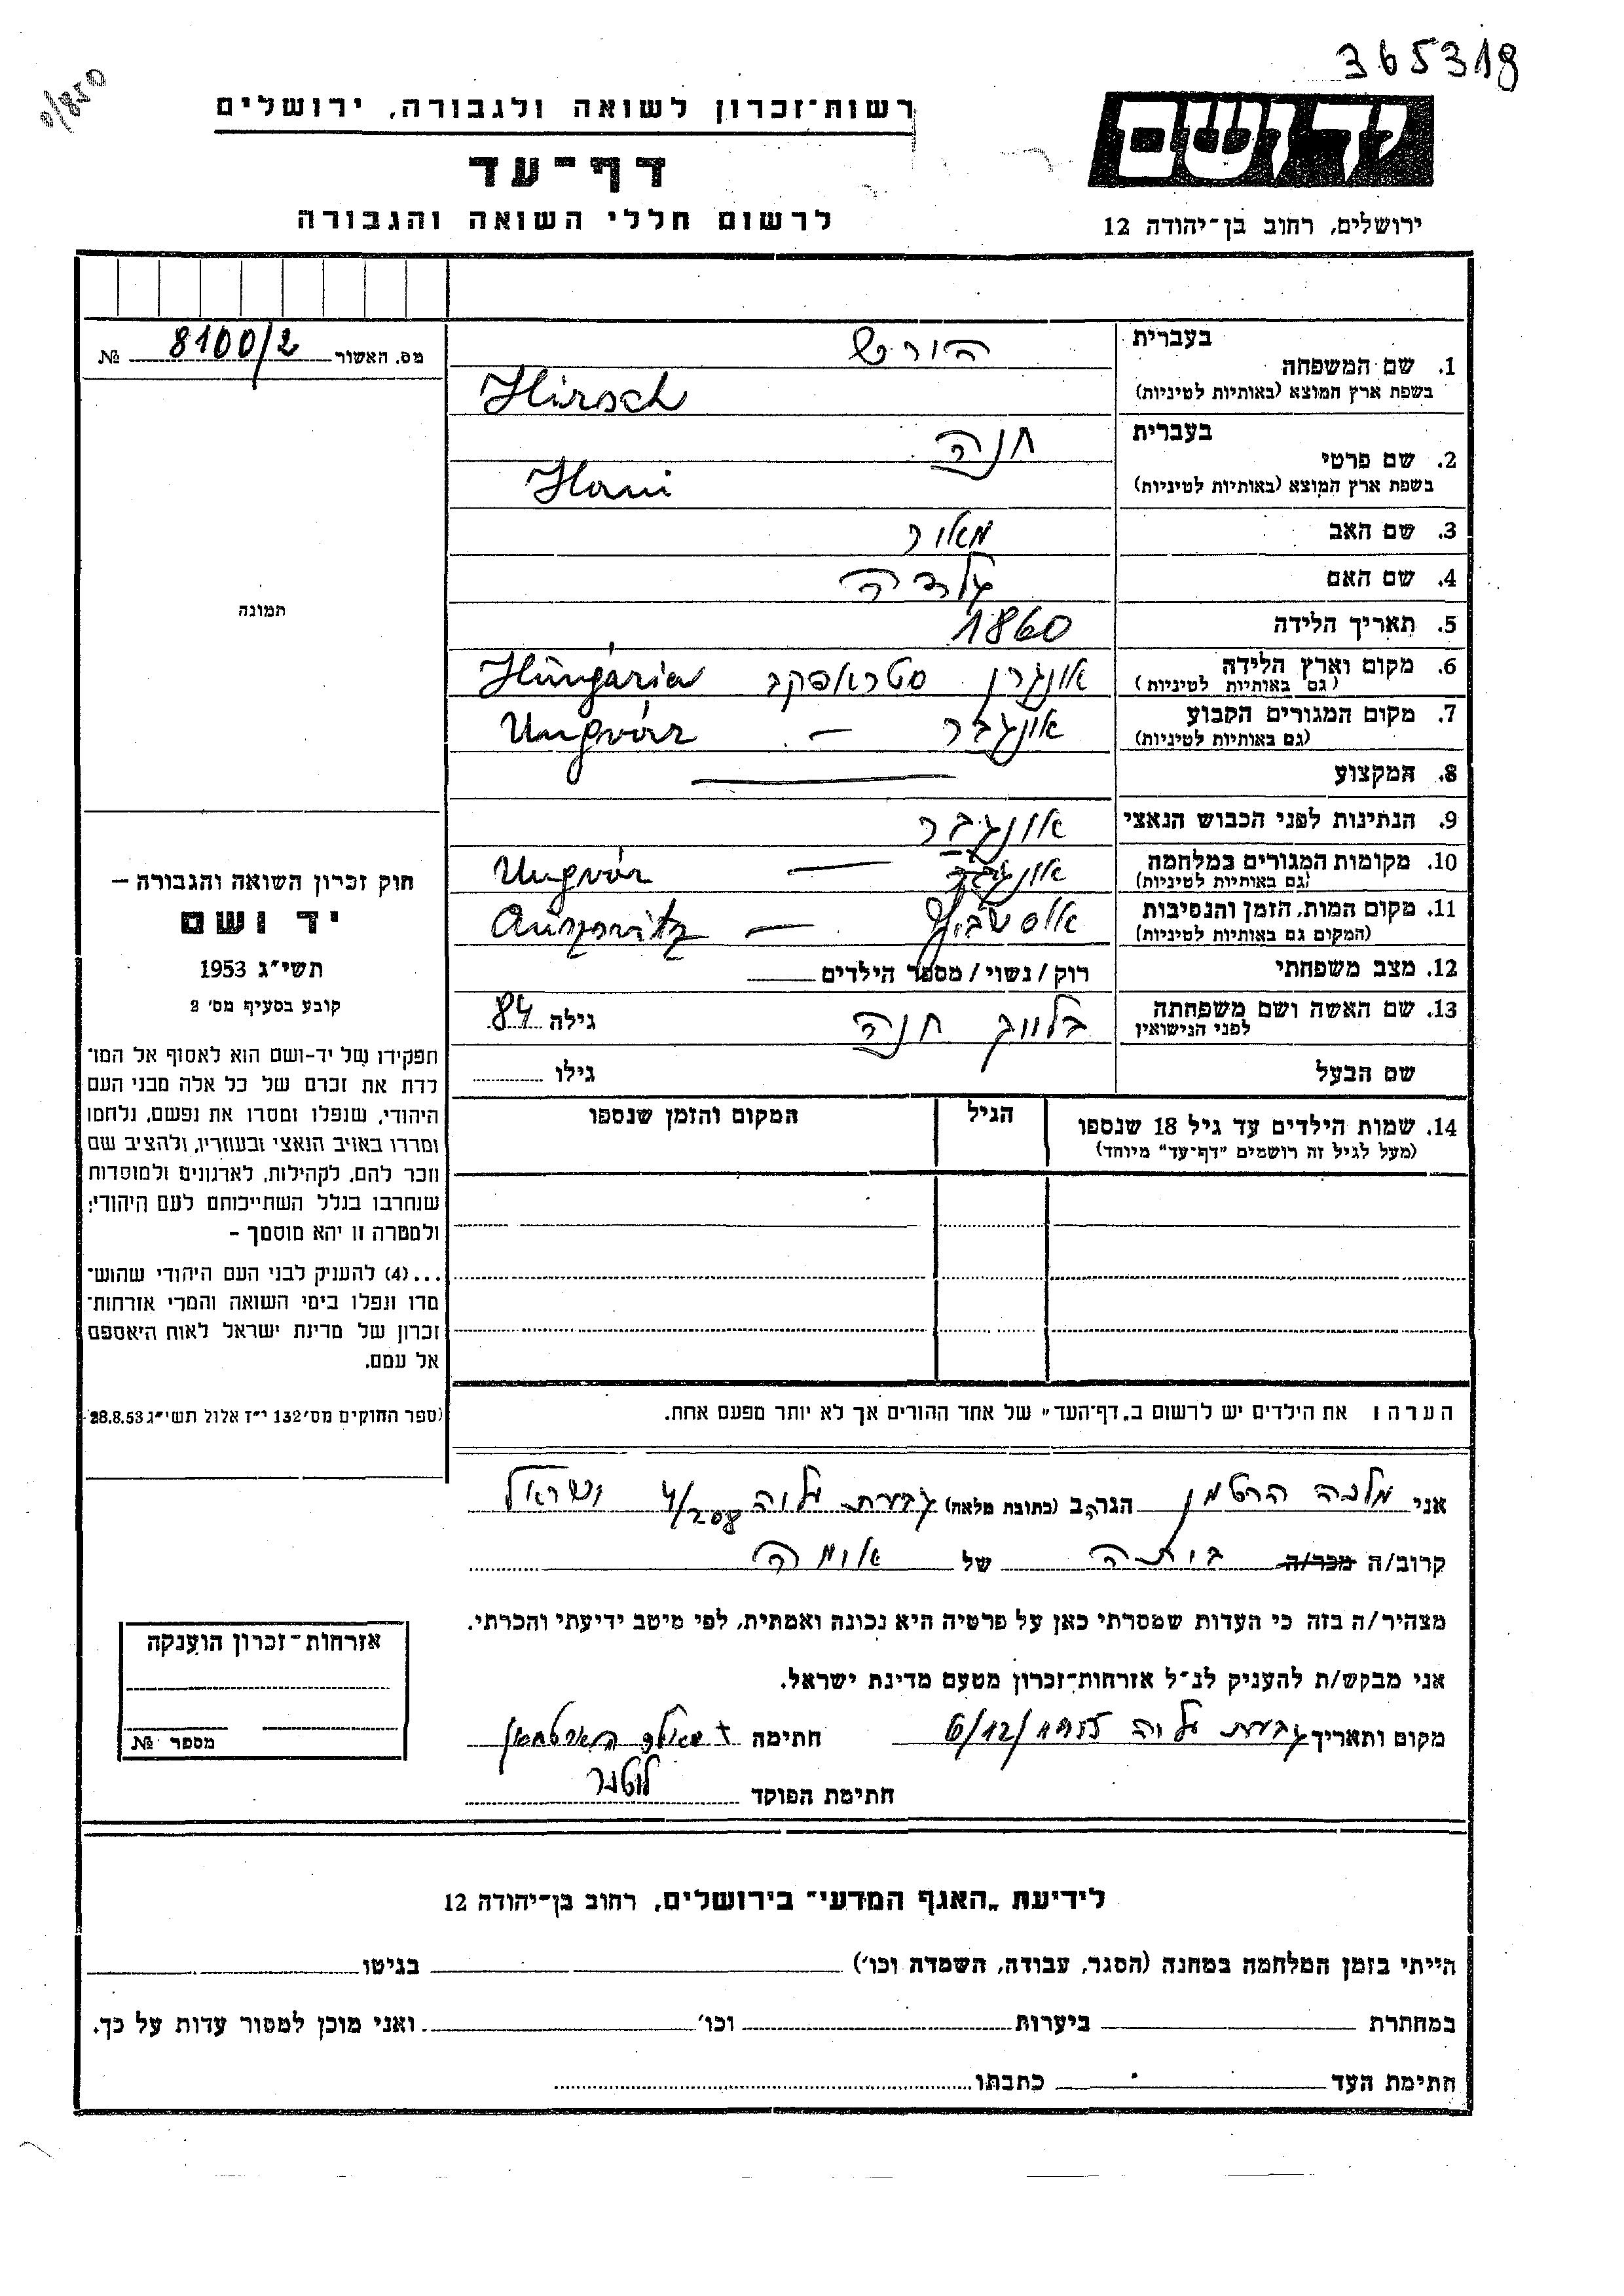 365318
0/850
רשות־זכרון לשואה ולגבורה, ירושלים
דף־עד
לרשום חללי השואה והגבורה
יד ושם
ירושלים, רחוב בן־יהודה 12
מס. האשור 8100/2 №
תמונה
חוק זכרון השואה והגבורה –
יד ושם
תשי״ג 1953
קובע בסעיף מס׳ 2
תפקידו של יד-ושם הוא לאסוף אל המו־
לדת את זכרם של כל אלה מבני העם
היהודי, שנפלו ומסרו את נפשם, נלחמו
ומרדו באויב הנאצי ובעוזריו, ולהציב שם
וזכר להם, לקהילות, לארגונים ולמוסדות
שנחרבו בגלל השתייכותם לעם היהודי;
ולמטרה זו יהא מוסמך –
...(4) להעניק לבני העם היהודי שהוש־
מדו ונפלו בימי השואה והמרי אזרחות־
זכרון של מדינת ישראל לאות היאספם
אל עמם.
(ספר החוקים מס׳ 132 י״ז אלול תשי״ג 28.8.53
בעברית הירש
1. שם המשפחה
בשפת ארץ המוצא (באותיות לטיניות) Hirsch
בעברית חנה
2. שם פרטי
בשפת ארץ המוצא (באותיות לטיניות) Hani
3. שם האב מאיר
4. שם האם
5. תאריך הלידה 1860
6. מקום וארץ הלידה אונגרן סטראפקב Hungária
(גם באותיות לטיניות)
7. מקום המגורים הקבוע אונגבר – Ungvár
(גם באותיות לטיניות)
8. המקצוע
9. הנתינות לפני הכבוש הנאצי אונגבר
10. מקומות המגורים במלחמה אונגבר – Ungvár
(גם באותיות לטיניות)
11. מקום המות, הזמן והנסיבות אוסשביץ – Auszvitz
(המקום גם באותיות לטיניות)
12. מצב משפחתי רוק / נשוי / מספר הילדים
13. שם האשה ושם משפחתה חנה גילה 84
לפני הנישואין
שם הבעל גילו
14. שמות הילדים עד גיל 18 שנספו הגיל המקום והזמן שנספו
(מעל לגיל זה רושמים ״דף־עד״ מיוחד)
הערה: את הילדים יש לרשום ב„דף־העד״ של אחד ההורים אך לא יותר מפעם אחת.
אני מלכה הרטמן הגר/ה ב (כתובת מלאה) גבעת עליה 4/208 ישראל
קרוב/ה מכר/ה ביתה של אימה
מצהיר/ה בזה כי העדות שמסרתי כאן על פרטיה היא נכונה ואמתית, לפי מיטב ידיעתי והכרתי.
אני מבקש/ת להעניק לנ״ל אזרחות־זכרון מטעם מדינת ישראל.
מקום ותאריך גבעת עליה 6/12/1955 חתימה
חתימת הפוקד
אזרחות־זכרון הוענקה
מספר №
לידיעת „האגף המדעי״ בירושלים, רחוב בן־יהודה 12
הייתי בזמן המלחמה במחנה (הסגר, עבודה, השמדה וכו׳) בגיטו
במחתרת ביערות וכו׳ ואני מוכן למסור עדות על כך.
חתימת העד כתבתו